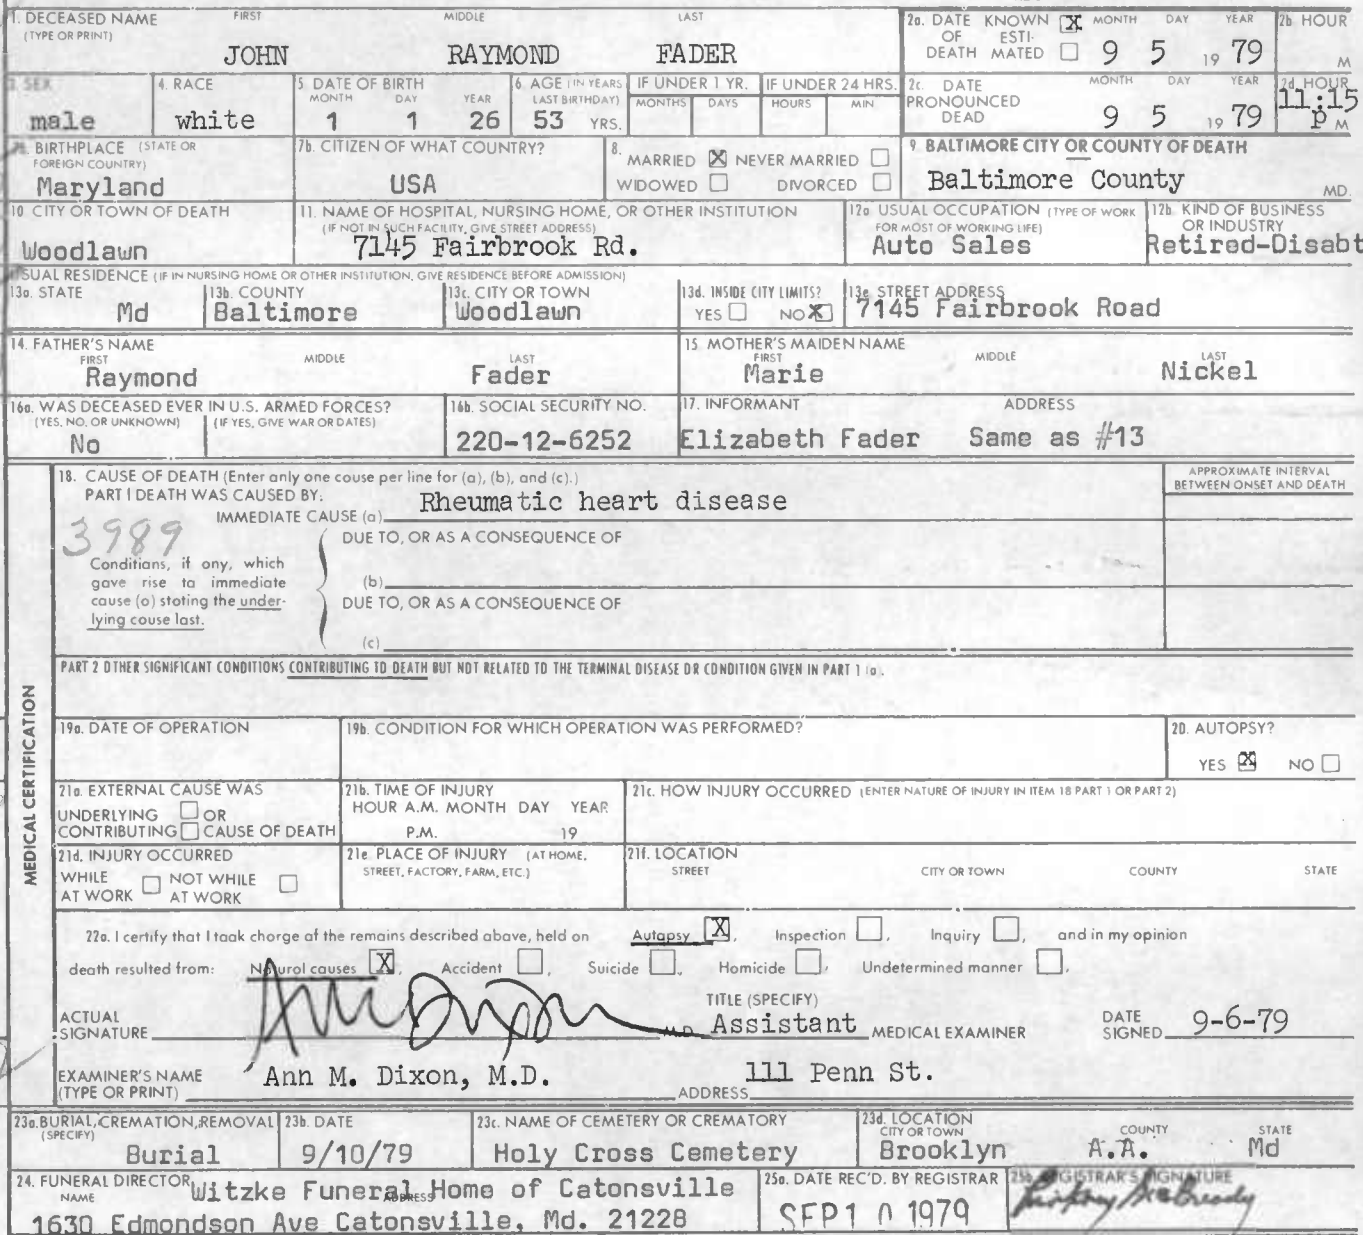 1. DECEASED NAME FIRST MIDDLE LAST
(TYPE OR PRINT)
JOHN RAYMOND FADER
2a. DATE KNOWN X MONTH DAY YEAR
OF ESTI-
DEATH MATED 9 5 19 79
2b. HOUR
M
3. SEX
male
4. RACE
white
5. DATE OF BIRTH
MONTH DAY YEAR
1 1 26
6. AGE (IN YEARS
LAST BIRTHDAY)
53 YRS.
IF UNDER 1 YR.
MONTHS DAYS
IF UNDER 24 HRS.
HOURS MIN
2c. DATE MONTH DAY YEAR
PRONOUNCED
DEAD 9 5 19 79
2d. HOUR
11:15
P M
7a. BIRTHPLACE (STATE OR
FOREIGN COUNTRY)
Maryland
7b. CITIZEN OF WHAT COUNTRY?
USA
8.
MARRIED X NEVER MARRIED
WIDOWED DIVORCED
9. BALTIMORE CITY OR COUNTY OF DEATH
Baltimore County MD.
10. CITY OR TOWN OF DEATH
Woodlawn
11. NAME OF HOSPITAL, NURSING HOME, OR OTHER INSTITUTION
(IF NOT IN SUCH FACILITY, GIVE STREET ADDRESS)
7145 Fairbrook Rd.
12a. USUAL OCCUPATION (TYPE OF WORK
FOR MOST OF WORKING LIFE)
Auto Sales
12b. KIND OF BUSINESS
OR INDUSTRY
Retired-Disabt
USUAL RESIDENCE (IF IN NURSING HOME OR OTHER INSTITUTION, GIVE RESIDENCE BEFORE ADMISSION)
13a. STATE
Md
13b. COUNTY
Baltimore
13c. CITY OR TOWN
Woodlawn
13d. INSIDE CITY LIMITS?
YES NO X
13e. STREET ADDRESS
7145 Fairbrook Road
14. FATHER'S NAME
FIRST MIDDLE LAST
Raymond Fader
15. MOTHER'S MAIDEN NAME
FIRST MIDDLE LAST
Marie Nickel
16a. WAS DECEASED EVER IN U.S. ARMED FORCES?
(YES, NO, OR UNKNOWN) (IF YES, GIVE WAR OR DATES)
No
16b. SOCIAL SECURITY NO.
220-12-6252
17. INFORMANT ADDRESS
Elizabeth Fader Same as #13
18. CAUSE OF DEATH (Enter only one cause per line for (a), (b), and (c).)
PART I DEATH WAS CAUSED BY:
IMMEDIATE CAUSE (a) Rheumatic heart disease
APPROXIMATE INTERVAL
BETWEEN ONSET AND DEATH
3989
DUE TO, OR AS A CONSEQUENCE OF
Conditions, if any, which
gave rise to immediate
cause (a) stating the under-
lying cause last.
(b)
DUE TO, OR AS A CONSEQUENCE OF
(c)
PART 2 OTHER SIGNIFICANT CONDITIONS CONTRIBUTING TO DEATH BUT NOT RELATED TO THE TERMINAL DISEASE OR CONDITION GIVEN IN PART 1 (a).
MEDICAL CERTIFICATION
19a. DATE OF OPERATION
19b. CONDITION FOR WHICH OPERATION WAS PERFORMED?
20. AUTOPSY?
YES X NO
21a. EXTERNAL CAUSE WAS
UNDERLYING OR
CONTRIBUTING CAUSE OF DEATH
21b. TIME OF INJURY
HOUR A.M. MONTH DAY YEAR
P.M. 19
21c. HOW INJURY OCCURRED (ENTER NATURE OF INJURY IN ITEM 18 PART 1 OR PART 2)
21d. INJURY OCCURRED
WHILE NOT WHILE
AT WORK AT WORK
21e. PLACE OF INJURY (AT HOME,
STREET, FACTORY, FARM, ETC.)
21f. LOCATION
STREET CITY OR TOWN COUNTY STATE
22a. I certify that I took charge of the remains described above, held on Autopsy X, Inspection , Inquiry , and in my opinion
death resulted from: Natural causes X, Accident , Suicide , Homicide , Undetermined manner ,
ACTUAL
SIGNATURE Ann Dixon M.D.
TITLE (SPECIFY)
Assistant MEDICAL EXAMINER
DATE
SIGNED 9-6-79
EXAMINER'S NAME
(TYPE OR PRINT) Ann M. Dixon, M.D.
ADDRESS 111 Penn St.
23a. BURIAL, CREMATION, REMOVAL
(SPECIFY)
Burial
23b. DATE
9/10/79
23c. NAME OF CEMETERY OR CREMATORY
Holy Cross Cemetery
23d. LOCATION
CITY OR TOWN COUNTY STATE
Brooklyn A.A. Md
24. FUNERAL DIRECTOR
NAME ADDRESS
Witzke Funeral Home of Catonsville
1630 Edmondson Ave Catonsville, Md. 21228
25a. DATE REC'D. BY REGISTRAR
SEP 10 1979
25b. REGISTRAR'S SIGNATURE